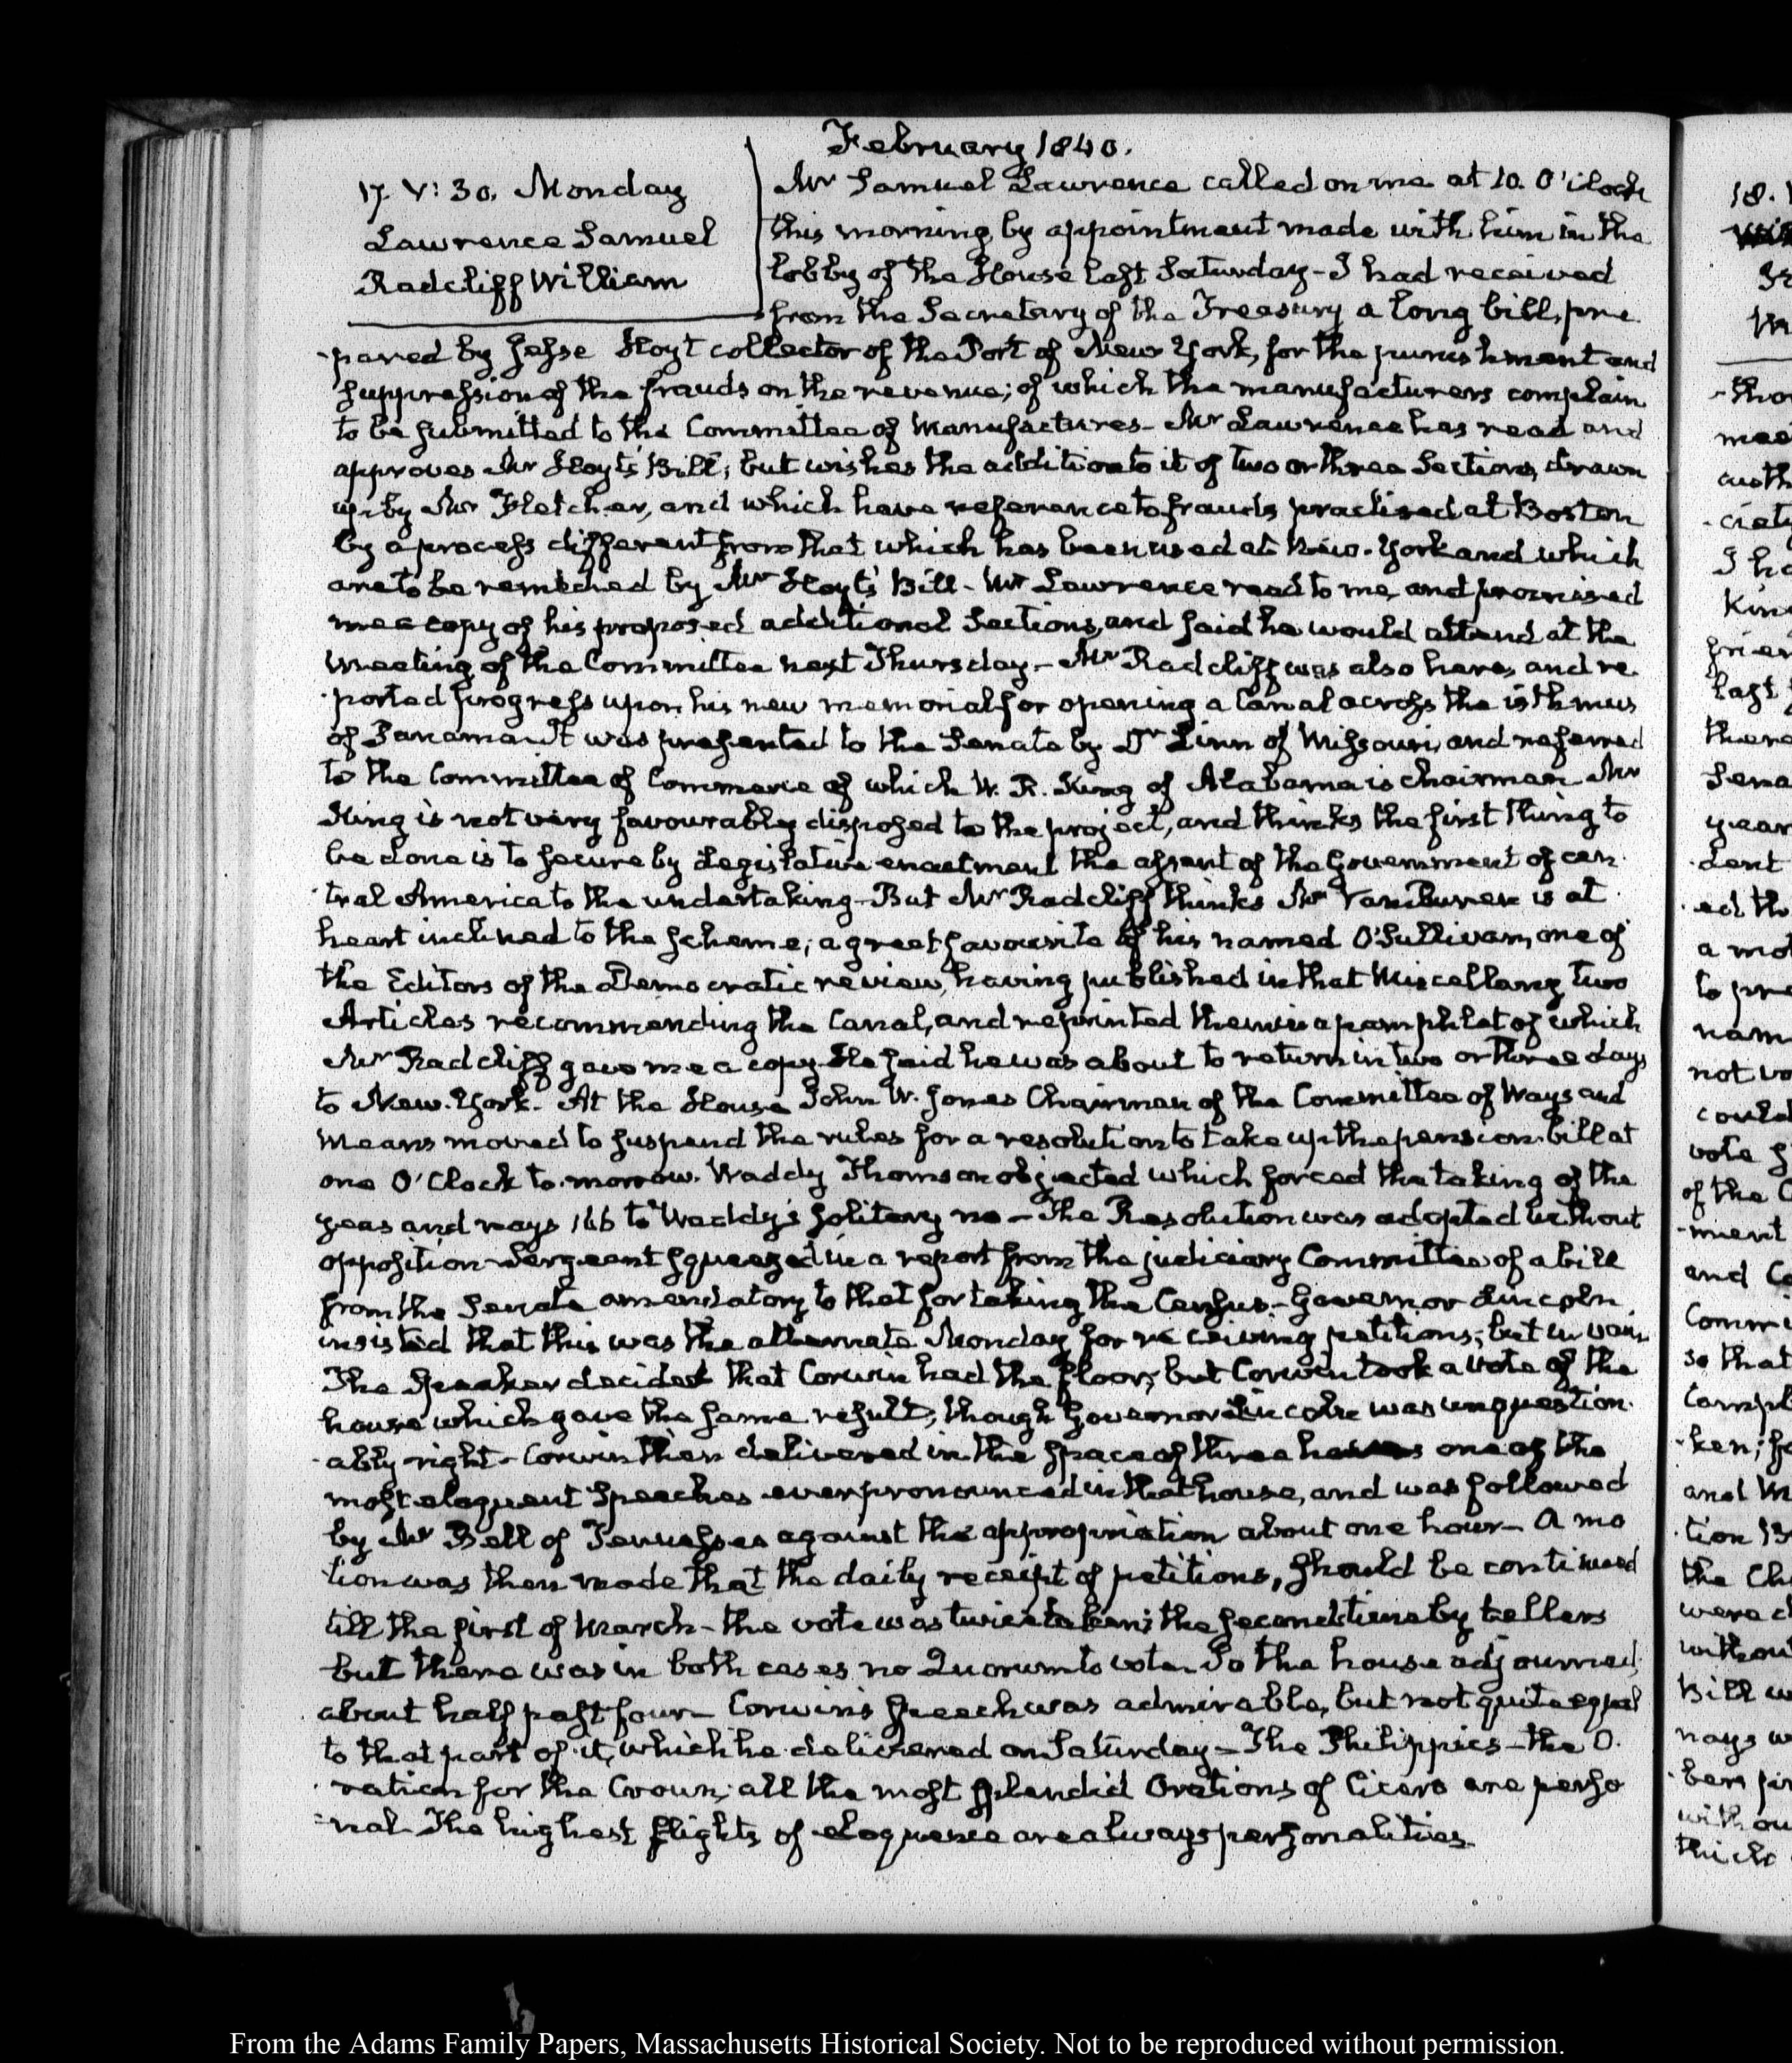 February 1840.
17. V: 30. Monday
Lawrence Samuel
Radcliff William
Mr Samuel Lawrence called on me at 10. O'Clock
this morning by appointment made with him in the
lobby of the House last Saturday - I had received
from the Secretary of the Treasury a long bill, pre-
-pared by Jesse Hoyt collector of the Port of New York, for the punishment and
suppression of the frauds on the revenue; of which the manufacturers complain
to be submitted to the Committee of Manufactures - Mr Lawrence has read and
approves Mr Hoyt's Bill; but wishes the addition to it of two or three Sections, drawn
up by Mr Fletcher, and which have reference to frauds practised at Boston
by a process different from that which has been used at New-York and which
are to be remedied by Mr Hoyt's Bill - Mr Lawrence read to me, and promised
me a copy of his proposed additional Sections, and said he would attend at the
meeting of the Committee next Thursday - Mr Radcliff was also here, and re-
-ported progress upon his new memorial for opening a Canal across the isthmus
of Panama - It was presented to the Senate by Dr Linn of Missouri, and referred
to the Committee of Commerce of which W. R. King of Alabama is chairman Mr
King is not very favourably disposed to the project, and thinks the first thing to
be done is to secure by Legislative enactment the assent of the Government of cen-
-tral America to the undertaking - But Mr Radcliff thinks Mr Van Buren is at
heart inclined to the scheme; a great favourite of his named O'Sullivan, one of
the Editors of the Democratic review, having published in that Miscellany two
Articles recommending the Canal, and reprinted them in a pamphlet of which
Mr Radcliff gave me a copy. He said he was about to return in two or three days
to New-York - At the House John W. Jones Chairman of the Committee of Ways and
Means moved to suspend the rules for a resolution to take up the pension bill at
one O'Clock to-morrow. Waddy Thomson objected which forced the taking of the
yeas and nays 166 to Waddy's solitary no - The Resolution was adopted without
opposition - Sergeant squeezed in a report from the judiciary Committee of a bill
from the Senate amendatory to that for taking the Census - Governor Lincoln
insisted that this was the alternate Monday for receiving petitions; but in vain
The Speaker decided that Corwin had the floor; but Corwin took a vote of the
house which gave the same result; though Governor Lincoln was unquestion-
-ably right - Corwin then delivered in the space of three hours one of the
most eloquent Speeches ever pronounced in that house, and was followed
by Mr Bell of Tennessee against the appropriation about one hour - A mo
tion was then made that the daily receipt of petitions, should be continued
till the first of March - the vote was twice taken; the second time by tellers
but there was in both cases no Quorum to vote. So the house adjourned
about half past four - Corwin's speech was admirable, but not quite equal
to that part of it, which he delivered on Saturday - The Philippics - the O-
-ration for the Crown; all the most splendid Orations of Cicero are perso
-nal - The highest flights of eloquence are always personalities.
18.
From the Adams Family Papers, Massachusetts Historical Society. Not to be reproduced without permission.